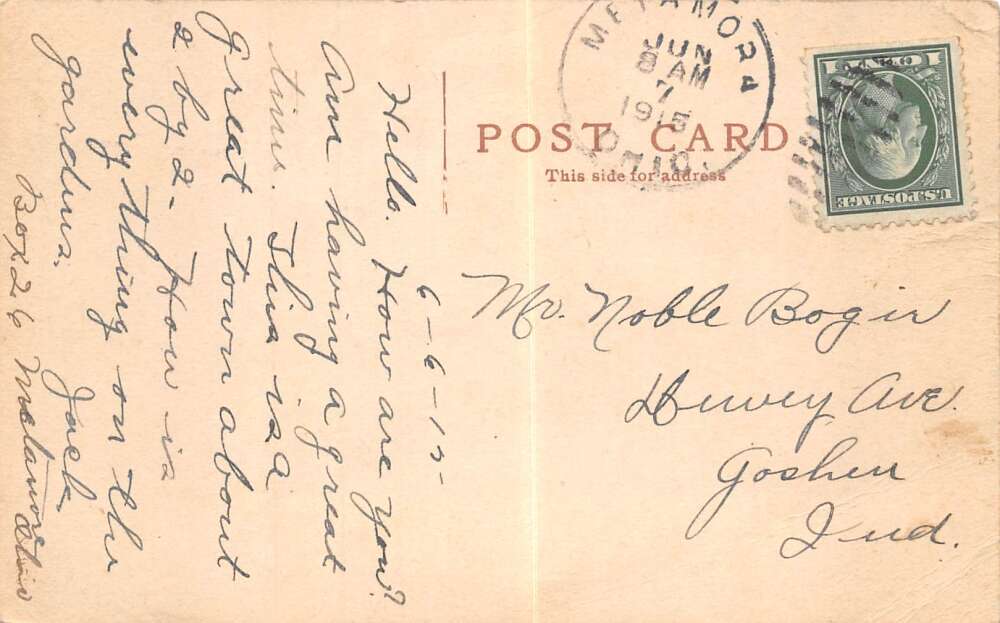 METAMORA
JUN
8 AM
7
1915
OHIO.
1 CENT 1
U.S. POSTAGE
POST CARD
This side for address
Mr. Noble Boger
Dewey Ave.
Goshen
Ind.
6-6-15
Hello. How are you?
Am having a great
time. This is a
Great town about
2 by 2- How is
every thing on the
gardens.
Jack
Box 26 Metamora
Ohio